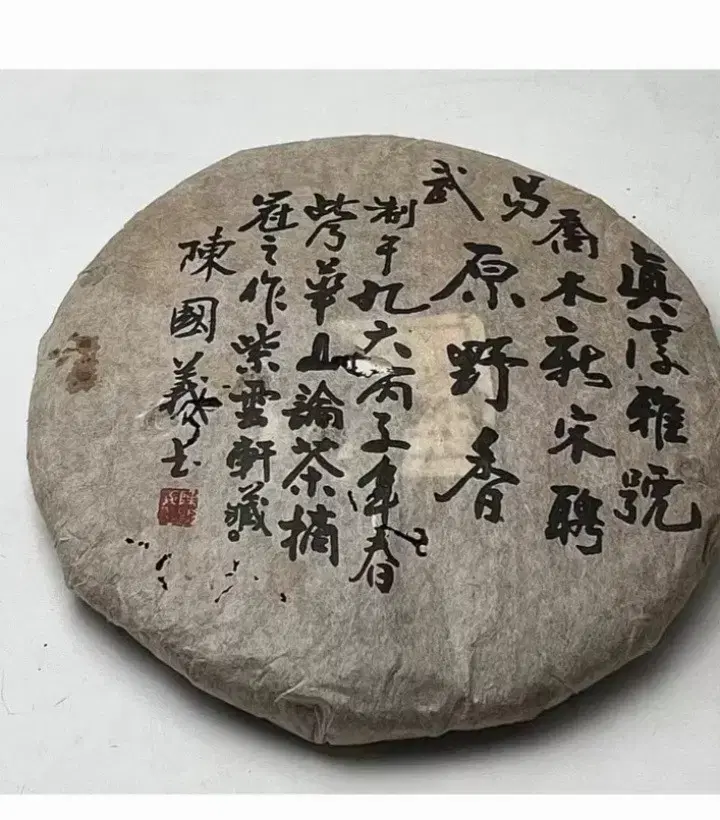 眞淳雅號
喬木新宋聘
易武
原野香
制于九六丙子年春
此乃華山論茶摘
冠之作紫雲軒藏。
陳國義